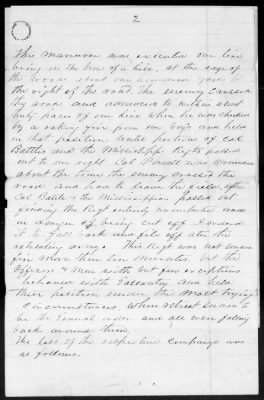 2
This manuver was executed our line
being on the brow of a hill, at the edge of
the woods about one hundred yards to
the right of the road. The enemy crossed
the road and advanced to within about
thirty paces of our line when he was checked
by a raking fire from our Brig and held
in that position until portion of Col
Battles and the Mississippi Regts passed
out to our right Col Powell was wounded
about the time the enemy crossed the
road and had to leave the field, after
Col Battle & the Mississippian passed out
finding the Regt entirely unsupported and
in danger of being cut off I ordered
it to fall back and file off after the
retreating army. This Regt was not under
fire more than ten minutes but the
Officers & men with but few exceptions
behaved with Gallantry and held
their position under the most trying
circumstances, when retreat seemed to
be the General order and all were falling
back around them.
The loss of the respective Companys was
as follows.